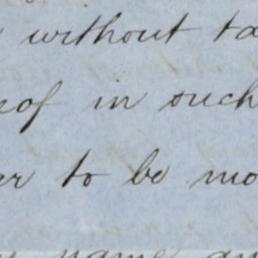 without ta
eof in such
er to be mo
name an